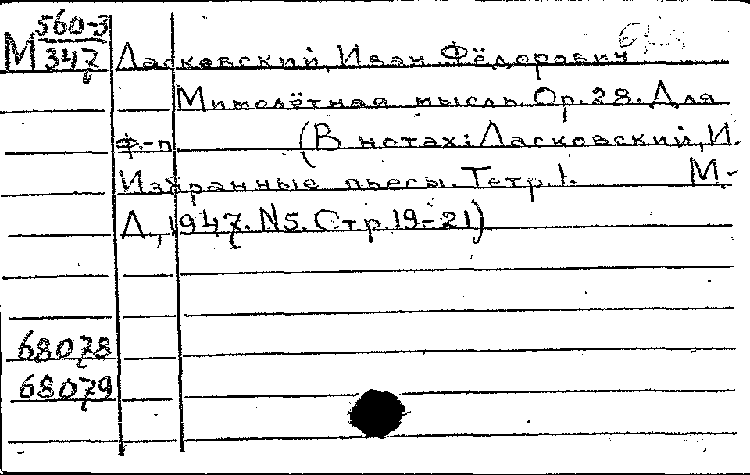 М 560-3
347 Ласковский, Иван Фёдорович
Мимолётная мысль. Op. 28. Для
ф.-п (В нотах: Ласковский, И.
Избранные пьесы. Тетр. 1. М.-
Л., 1947. N5. Стр. 19-21)
68078
68079